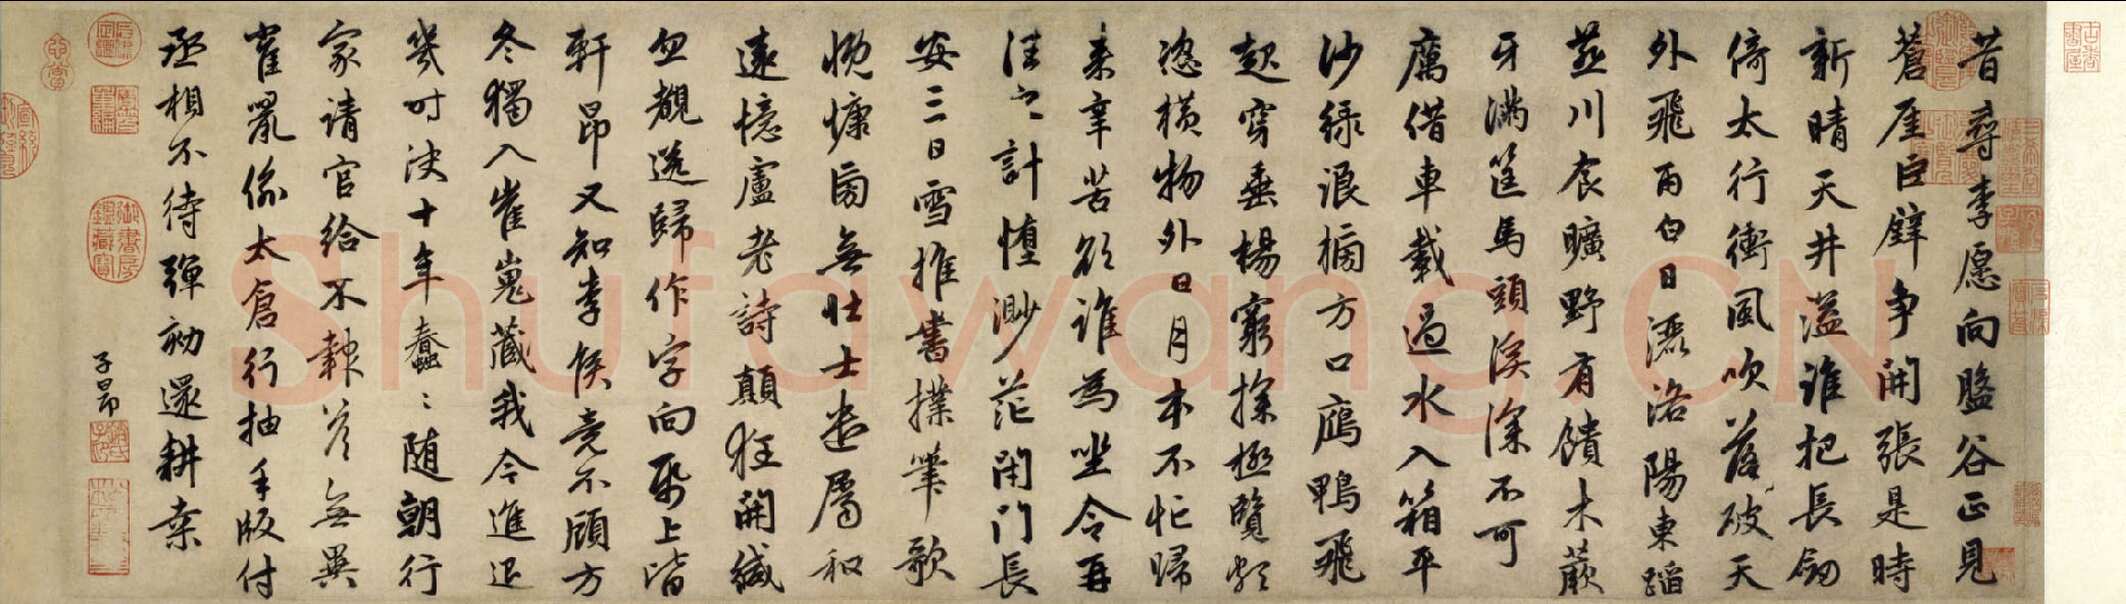 昔尋李愿向盤谷正見
蒼厓巨壁爭開張是時
新晴天井溢誰把長劒
倚太行衝風吹落破天
外飛雨白日灑洛陽東蹈
燕川食曠野有饋木蕨
牙滿筐馬頭溪深不可
厲借車載過水入箱平
沙綠浪榜方口鴈鴨飛
起穿垂楊窮探極覽頗
恣橫物外日月本不忙歸
來辛苦欲誰為坐令再
往之計墮渺茫閉門長
安三日雪推書撲筆歌
慨慷旁無壯士遣屬和
遠憶盧老詩顛狂開緘
忽覩送歸作字向紙上皆
軒昂又知李侯竟不顧方
冬獨入崔嵬藏我今進退
幾時決十年蠢〻隨朝行
家請官給不報答無異
雀鼠偷太倉行抽手版付
丞相不待彈劾還耕桑
子昂
Shufawang.CN